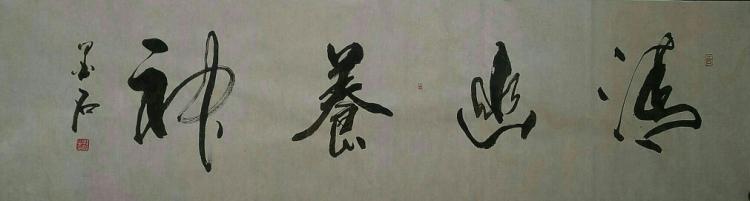 清幽養神
墨石